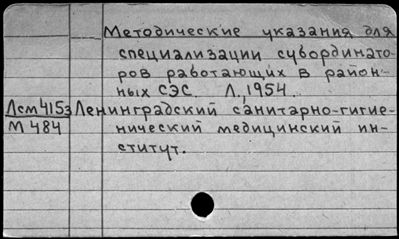 Методические указания для
специализации субордината-
ров работающих в район-
ных СЭС. Л., 1954.
Лсм415з Ленинградский санитарно-гигие-
М 484 нический медицинский ин-
ститут.